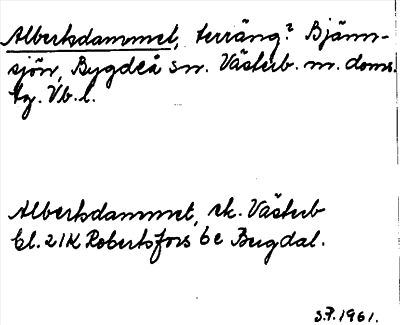 Albertsdammet, terräng? Bjänn-
sjön, Bygdeå sn. Västerb. m. doms.
tg. Vb. l.
Albertsdammet, ek. Västerb
bl. 21K Robertsfors 6e Bygdal.
S.P. 1961.